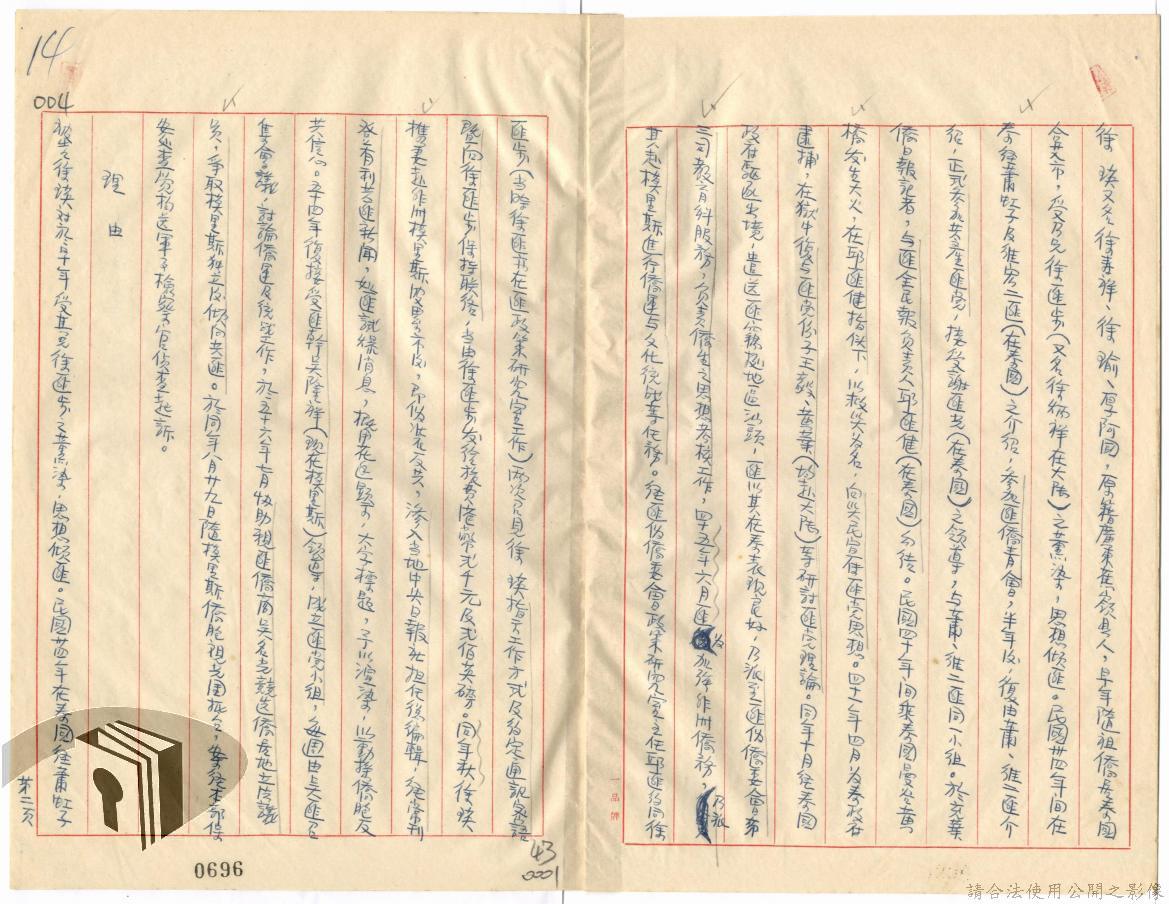 徐瑛又名徐春祥、徐瑜、厚阿國,原籍廣東蕉嶺縣人,早年隨祖僑居泰國
合艾市,受乃兄徐匪步(又名徐炳祥在大陸)之薰染,思想傾匪。民國卅四年間在
泰經蕭虹子及維宏二匪(在泰國)之介紹,參加匪僑青會,半年後,復由蕭、維二匪介
紹,正式參加共產匪黨,接受謝匪光(在泰國)之領導,与蕭、維二匪同一小組。於充業
僑日報記者,与匪全民報負責人邱匪健(在泰國)勾結。民國四十一年間乘泰國曼谷黃
橋發生大火,在邱匪健指供下,以救災為名,向災民宣傳匪黨思想。四十一年四月為泰政府
逮捕,在獄中復与匪党份子王毅、黃葉(均赴大陸)等研討匪党理論。同年十月經泰國
政府驅逐出境,遣送匪窩地區汕頭,匪以其在泰表現良好,乃派至匪偽僑委會第
三司教育科服務,負責僑生之思想考核工作,四十五年六月匪為加強非洲僑務,乃派
其赴模里斯進行僑運与文化統戰等任務。經匪偽僑委會政策研究室主任邱匪及同徐
匪步(當時徐匪亦在匪政策研究室工作)兩次召見徐瑛指示工作方式及約定通訊家語
暨向徐匪步保持聯絡,當由徐匪步發給旅費港幣弍千元及弍佰英磅。同年秋徐瑛
攜妻赴非洲模里斯岛母舅家後,即偽裝反共,滲入當地中央日報社担任總編輯,經常刊
登有利共匪新聞,如匪試綠消息,擬用花邊顯示,大字標題,予以渲染,以動搖僑胞反
共信心。五十四年復接受匪幹吳隆祥(現在模里斯)領導,成立匪党小組,每週由吳匪召
集會議,討論僑運及統戰工作,於五十六年七月協助親匪僑商吳名光競選僑居地立法議
員,爭取模里斯独立及傾向共匪。於同年八月廿九日隨模里斯僑胞觀光團抵台,案經本部保
安處查覺移送軍事檢察官偵查起訴。
理由
被告徐瑛对於三十年受其兄徐匪步之薰染,思想傾匪。民國卅四年在泰國經蕭虹子
第二頁
14
004
43
0001
0696
一品牌
請合法使用公開之影像